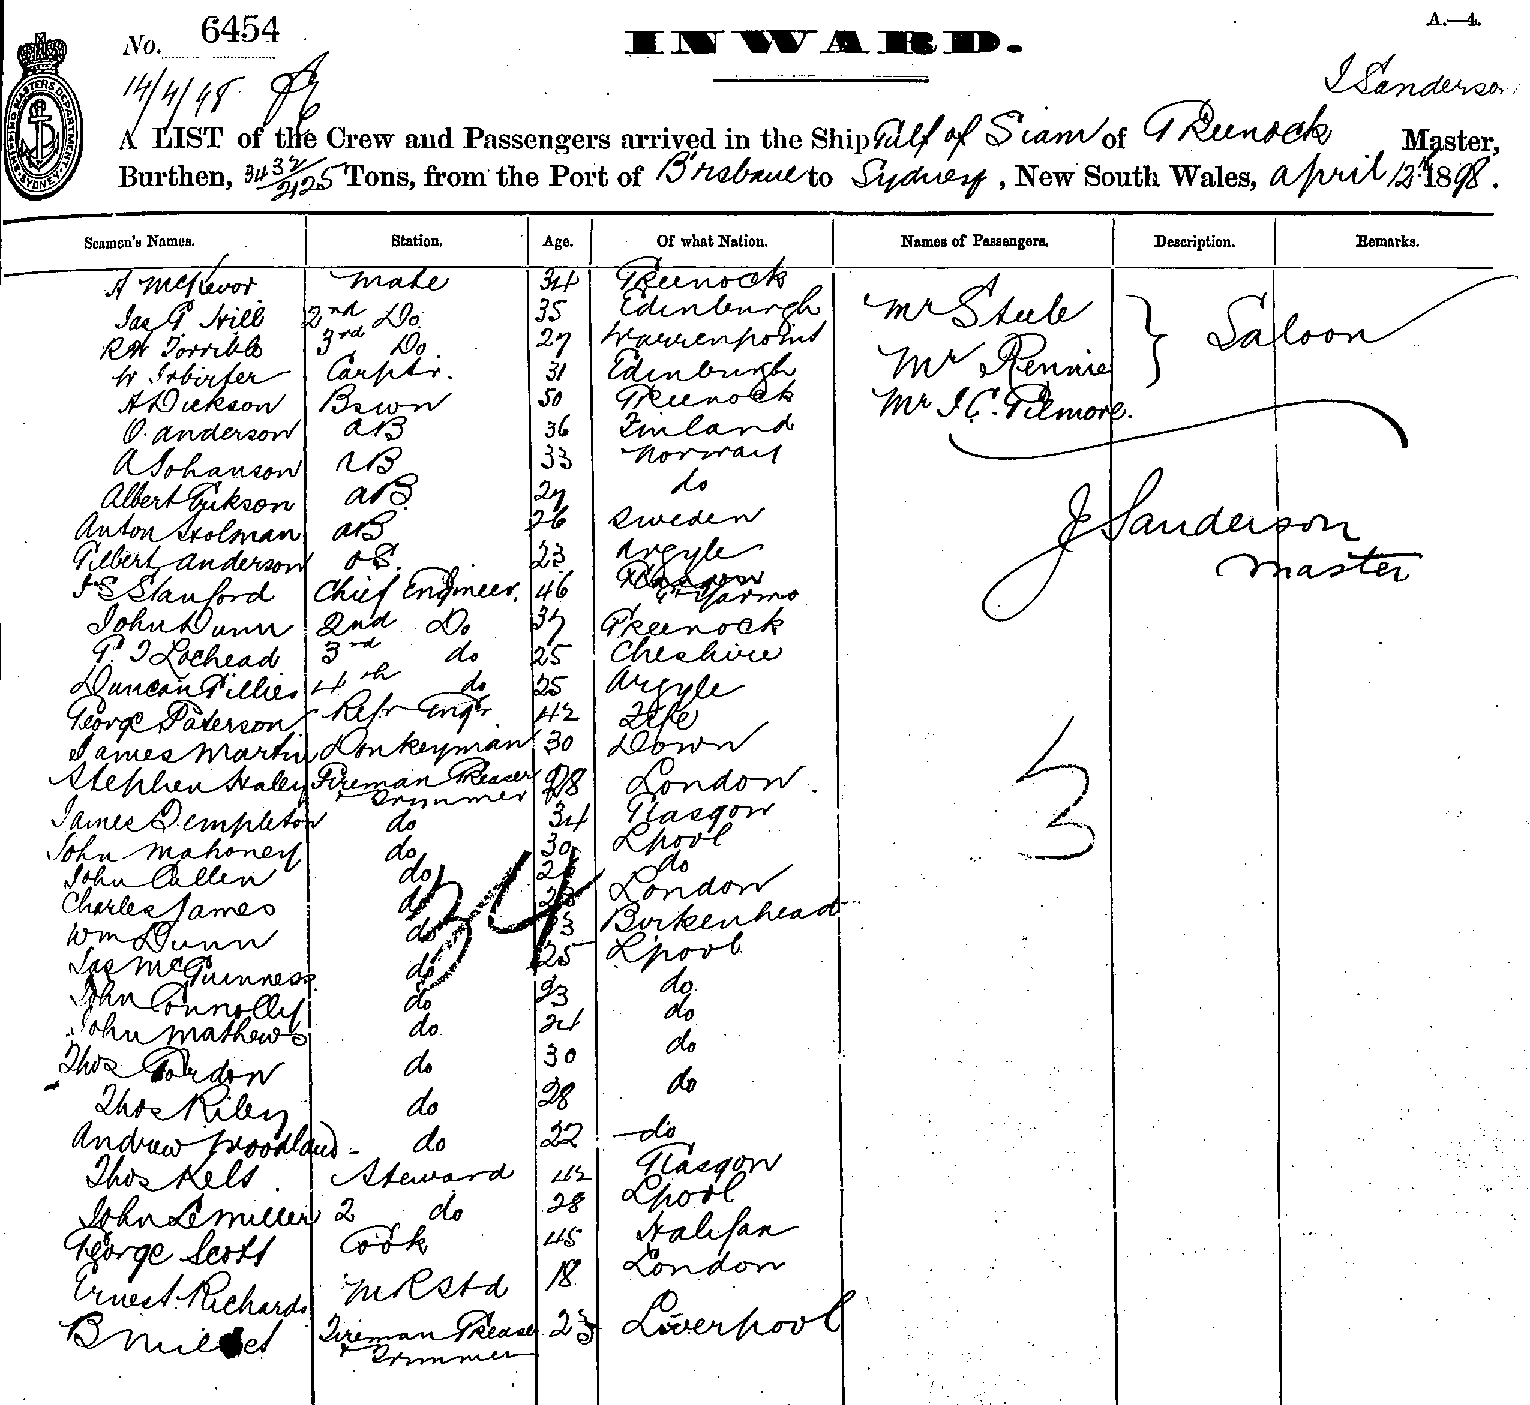 A.—4.
No. 6454
INWARD.
14/4/98
J Sanderson
A LIST of the Crew and Passengers arrived in the Ship Gulf of Siam of Greenock Master,
Burthen, 3432/2125 Tons, from the Port of Brisbane to Sydney, New South Wales, April 12th 1898.
SHIPPING MASTERS DEPARTMENT SYDNEY
Seamen's Names. Station. Age. Of what Nation. Names of Passengers. Description. Remarks.
A McKevor Mate 34 Greenock
Jas G Hill 2nd Do. 35 Edinburgh Mr Steele Saloon
RW Torrible 3rd Do. 27 Warrenpoint Mr Rennie
W Carptr. 31 Edinburgh
A Dickson Bswn 50 Greenock Mr J. C. Gilmore.
O. Anderson AB 36 Finland
A Johanson AB 33 Norway
Albert Erikson AB 27 do
Anton Holman AB 26 Sweden J Sanderson
Gilbert Anderson OS. 23 Argyle Master
J S Stanford Chief Engineer. 46 Glasgow
Gt Yarmo
John Dunn 2nd Do 37 Greenock
G. J Lochead 3rd do 25 Cheshire
Duncan Gillies 4th do 25 Argyle
George Paterson Refr Engr 42 Fife
James Martin Donkeyman 30 Down
Stephen Haley Fireman Greaser & Trimmer 28 London.
James Templeton do 34 Glasgow
John Mahoney do 30 Lpool
John Cullen do do
Charles James do London
Wm Dunn do 23 Birkenhead
Jas McGuinness do 25 Lpool
John Connolly do 23 do.
John Mathews do 24 do
Thos Gordon do 30 do
Thos Riley do 28 do
Andrew Woodland - do 22 do
Thos Kelt Steward 42 Glasgow
John Lemiller 2 do 28 Lpool
George Scott Cook 45 Halifax
Ernest Richards MRStd 18 London
B Fireman Greaser & Trimmer Liverpool
34
3